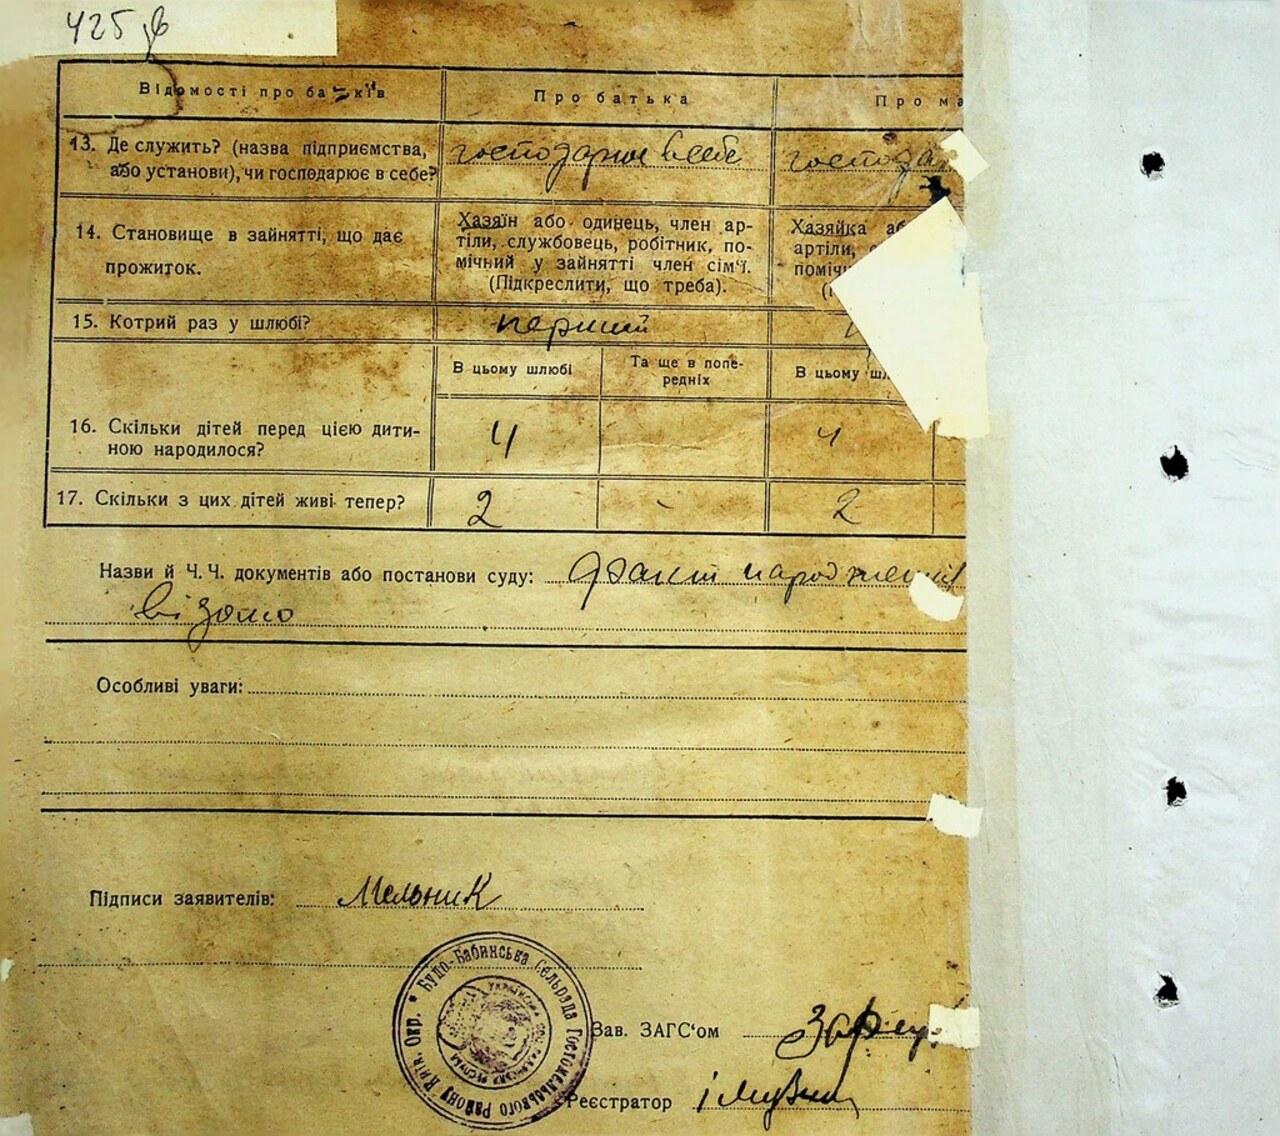 425 в
Відомості про батьків
Про батька
Про ма
13. Де служить? (назва підприємства,
або установи), чи господарює в себе?
господарює в себе
господа
14. Становище в зайнятті, що дає
прожиток.
Хазяїн або одинець, член ар-
тіли, службовець, робітник, по-
мічний у зайнятті член сім'ї.
(Підкреслити, що треба).
Хазяйка аб
артіли,
поміч
15. Котрий раз у шлюбі?
перший
В цьому шлюбі
Та ще в попе-
редніх
В цьому шл
16. Скільки дітей перед цією дити-
ною народилося?
4
4
17. Скільки з цих дітей живі тепер?
2
-
2
Назви й Ч. Ч. документів або постанови суду: Факт народження
відомо
Особливі уваги:
Підписи заявителів: Мельник
Будо-Бабинська Сельрада Гостомельського Району Київ. Окр.
Зав. ЗАГС'ом
Реєстратор